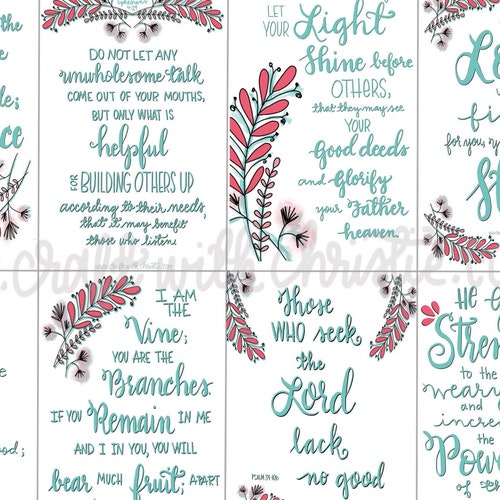 Ephesians
4:29
DO NOT LET ANY
unwholesome talk
COME OUT OF YOUR MOUTHS,
BUT ONLY WHAT IS
helpful
FOR BUILDING OTHERS UP
according to their needs,
that it may benefit
those who listen.
LET
YOUR Light
Shine before
OTHERS,
that they may see
YOUR
Good deeds
and Glorify
your Father
heaven
for you,
I AM
THE
Vine;
YOU ARE THE
Branches.
IF YOU Remain IN ME
AND I IN YOU, YOU WILL
bear MUCH fruit; APART
Those
WHO seek
the
Lord
lack
no good
PSALM 34:10b
HE
to the
wear
and
incre
the
Power
of the